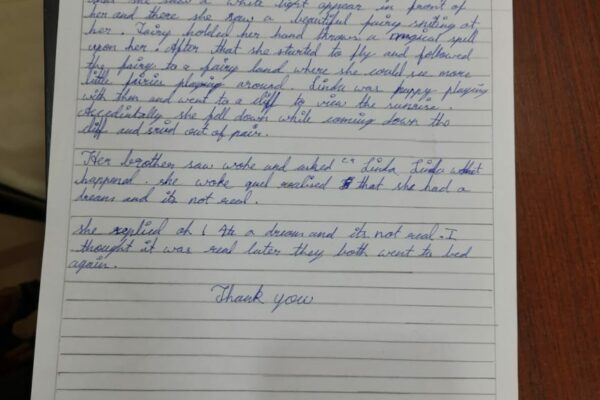 she saw a white light appear in front of
her and there she saw a beautiful fairy smiling at
her. Fairy holded her hand thrown a magical spell
upon her. After that she started to fly and followed
the fairy to a fairy land where she could see more
little fairies playing around. Linda was happy playing
with them and went to a cliff to view the sunrise.
Accedintally she fell down while coming down the
cliff and cried out of pain.
Her brother saw woke and asked " Linda, Linda what
happened she woke realised that she had a
dream and its not real.
She replied oh ! Its a dream and its not real. I
thought it was real later they both went to bed
again.
Thank you